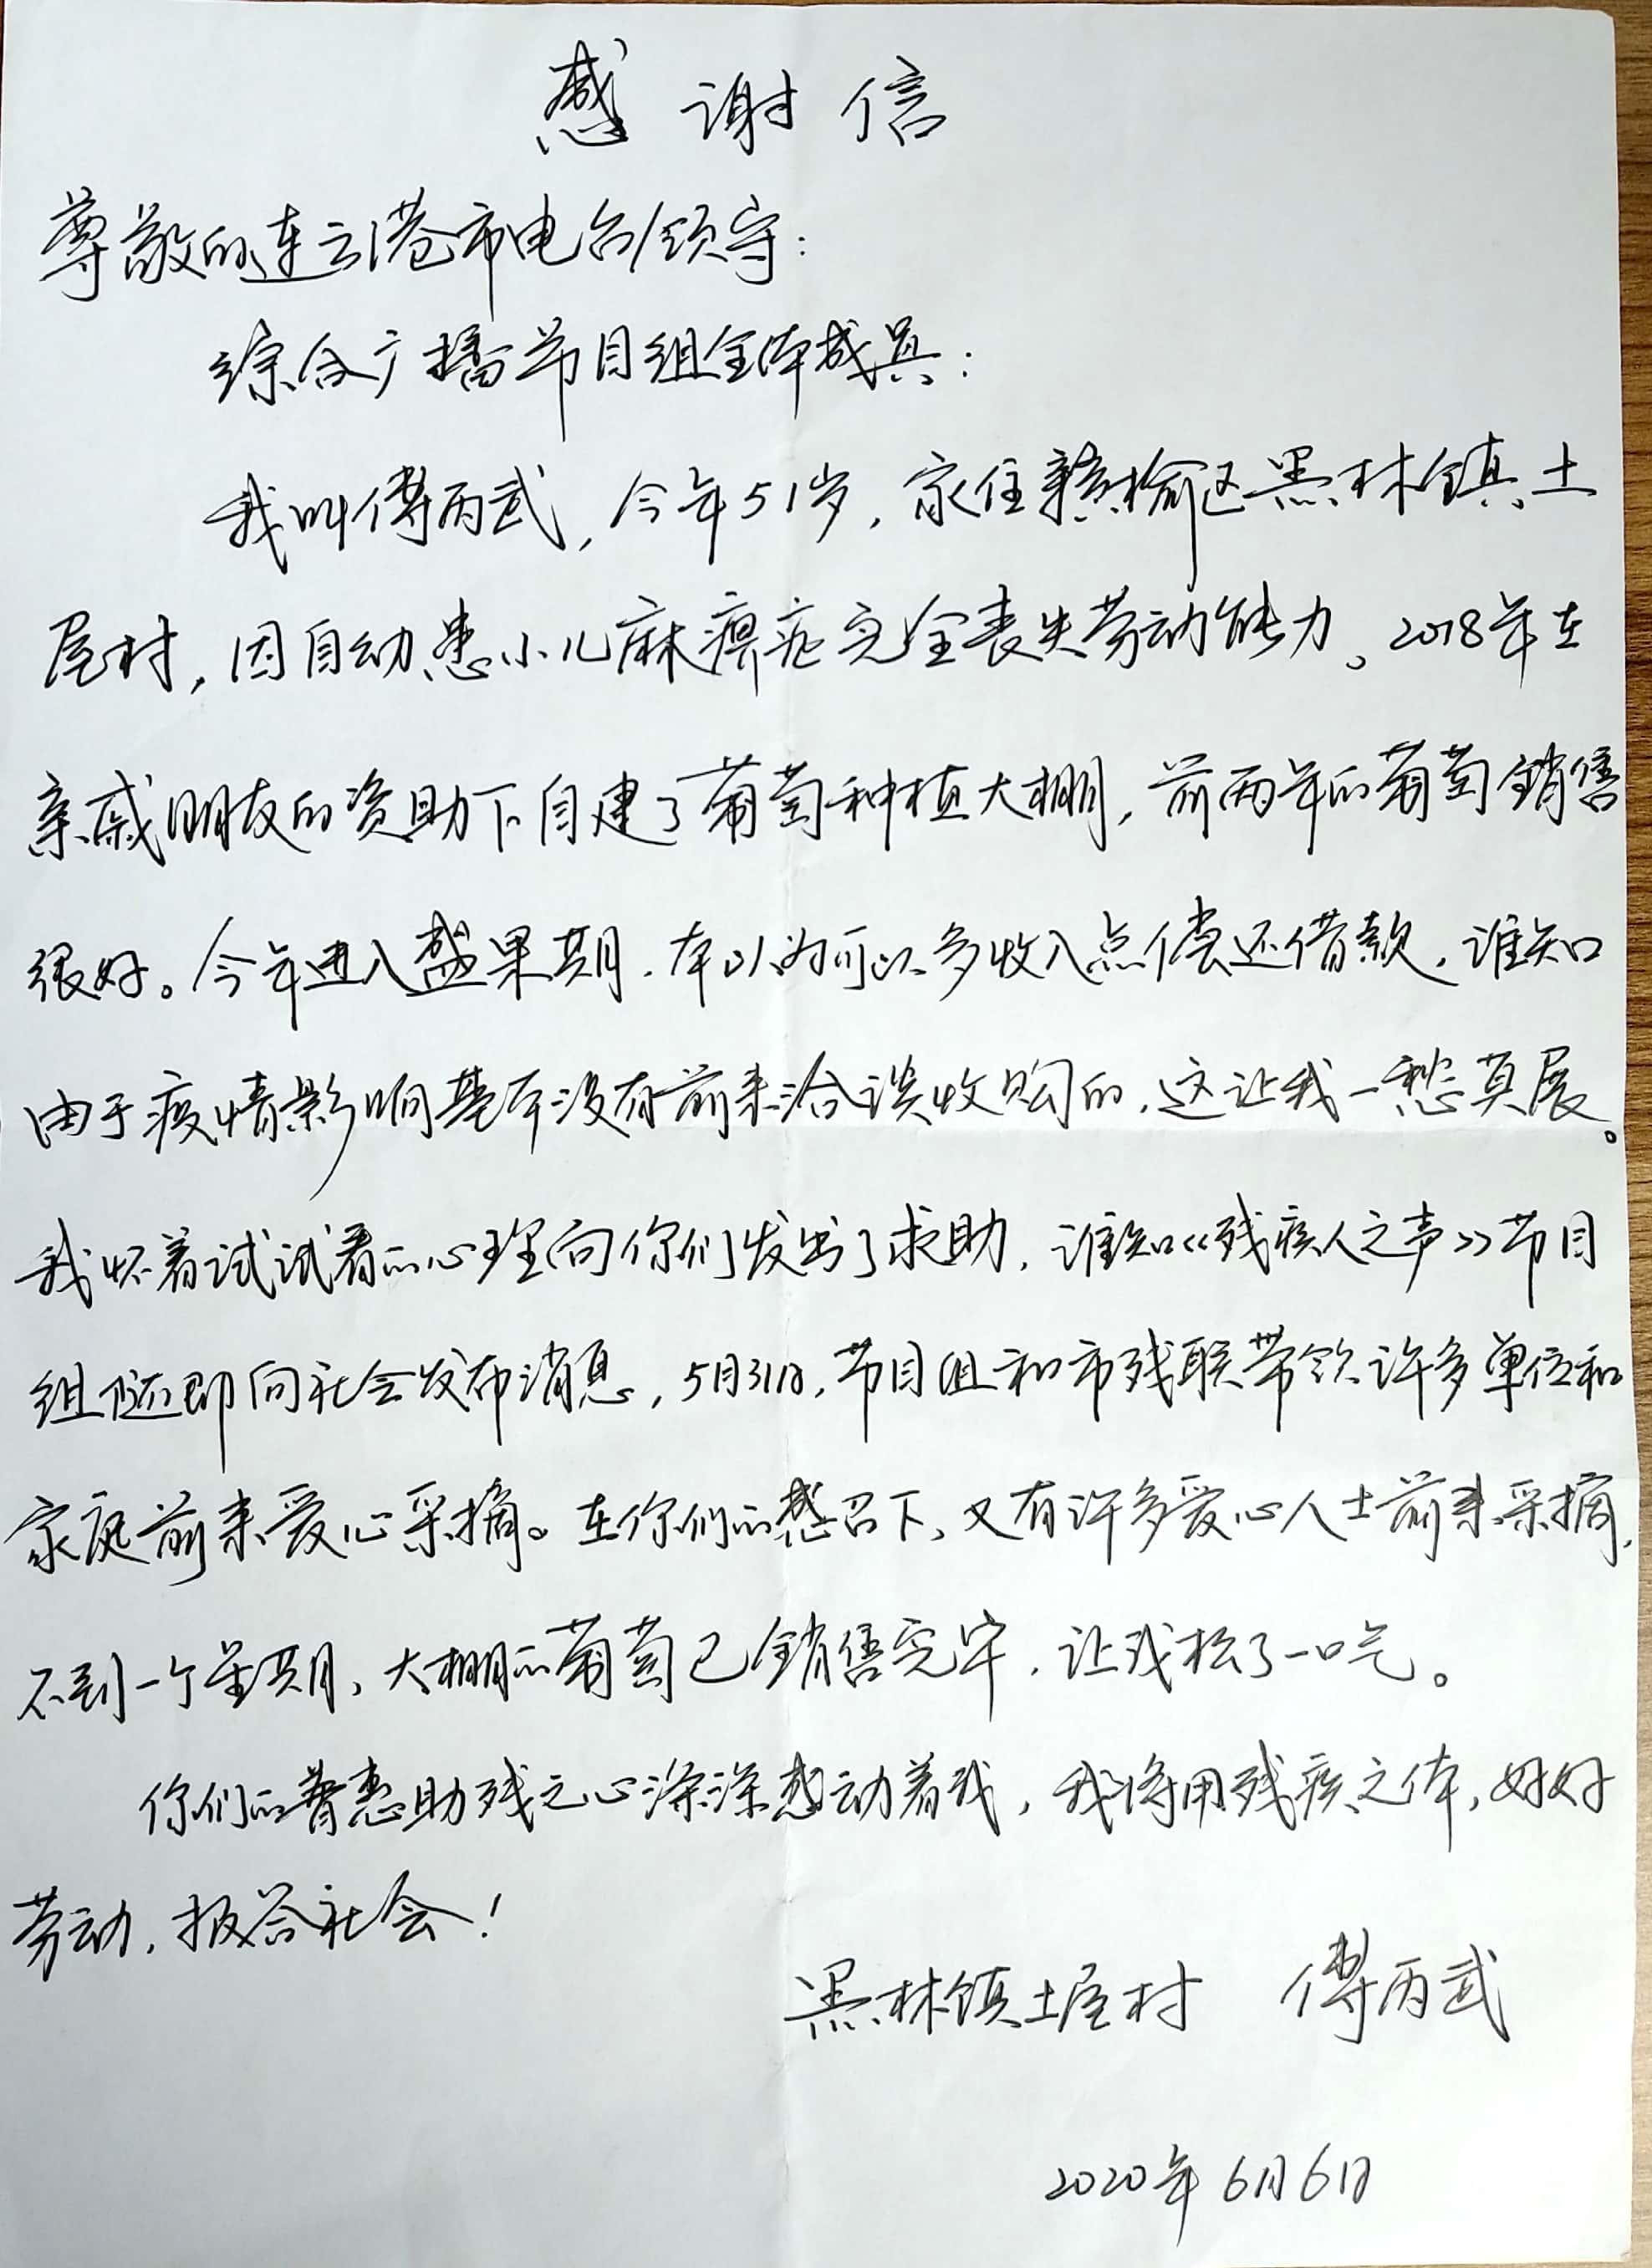 感谢信
尊敬的连云港市电台领导：
综合广播节目组全体成员：
我叫傅丙武，今年51岁，家住赣榆区黑林镇土
屋村，因自幼患小儿麻痹症完全丧失劳动能力。2018年在
亲戚朋友的资助下自建了葡萄种植大棚，前两年的葡萄销售
很好。今年进入盛果期，本以为可以多收入点偿还借款，谁知
由于疫情影响基本没有前来洽谈收购的，这让我一愁莫展。
我怀着试试看的心理向你们发出了求助，谁知《残疾人之声》节目
组随即向社会发布消息，5月31日，节目组和市残联带领许多单位和
家庭前来爱心采摘。在你们的感召下，又有许多爱心人士前来采摘，
不到一个星期，大棚的葡萄已销售完毕，让我松了一口气。
你们的普惠助残之心深深感动着我，我将用残疾之体，好好
劳动，报答社会！
黑林镇土屋村 傅丙武
2020年6月6日